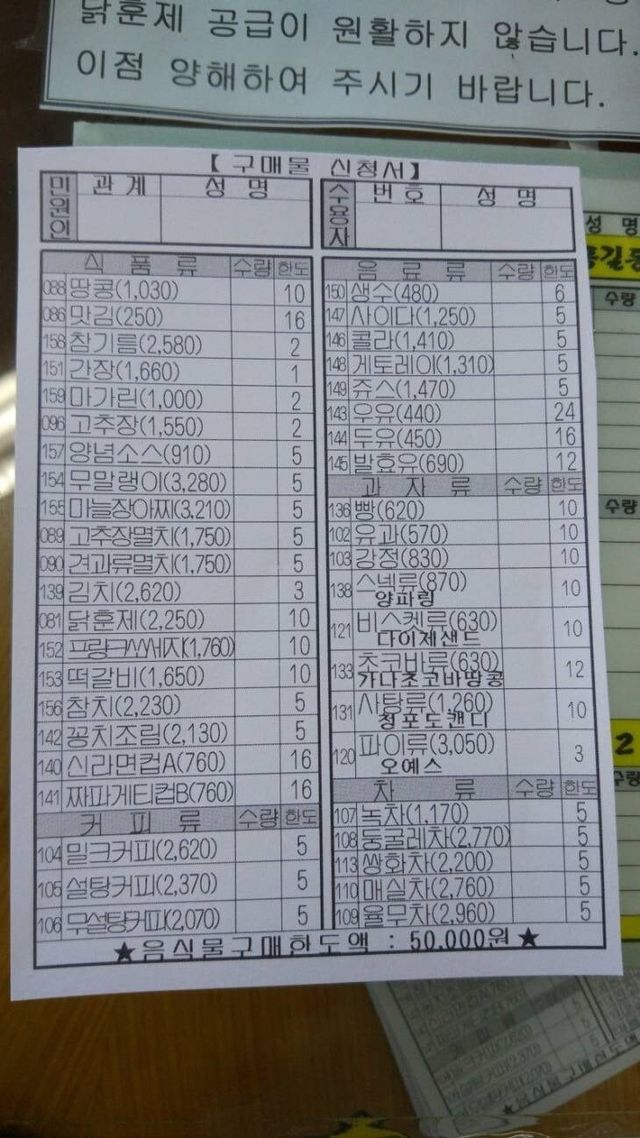 닭훈제 공급이 원활하지 않습니다.
이점 양해하여 주시기 바랍니다.
【 구매물 신청서】
민원인 관계 성 명
수용자 번호 성 명
식 품 류 수량 한도
088 땅콩(1,030) 10
086 맛김(250) 16
158 참기름(2,580) 2
151 간장(1,660) 1
159 마가린(1,000) 2
096 고추장(1,550) 2
157 양념소스(910) 5
154 무말랭이(3,280) 5
155 마늘장아찌(3,210) 5
089 고추장멸치(1,750) 5
090 견과류멸치(1,750) 5
139 김치(2,620) 3
081 닭훈제(2,250) 10
152 프랑크쏘세지(1,760) 10
153 떡갈비(1,650) 10
156 참치(2,230) 5
142 꽁치조림(2,130) 5
140 신라면컵A(760) 16
141 짜파게티컵B(760) 16
커 피 류 수량 한도
104 밀크커피(2,620) 5
105 설탕커피(2,370) 5
106 무설탕커피(2,070) 5
음 료 류 수량 한도
150 생수(480) 6
147 사이다(1,250) 5
146 콜라(1,410) 5
148 게토레이(1,310) 5
149 쥬스(1,470) 5
143 우유(440) 24
144 두유(450) 16
145 발효유(690) 12
과 자 류 수량 한도
136 빵(620) 10
102 유과(570) 10
103 강정(830) 10
138 스넥류(870) 10
양파링
121 비스케류(630) 10
다이제샌드
133 초코바류(630) 12
가나초코바땅콩
131 사탕류(1,260) 10
청포도캔디
120 파이류(3,050) 3
오예스
차 류 수량 한도
107 녹차(1,170) 5
108 둥굴레차(2,770) 5
113 쌍화차(2,200) 5
110 매실차(2,760) 5
109 율무차(2,960) 5
★음식물구매한도액 : 50,000원★
성 명
홍길동
수량
수량
2
수량